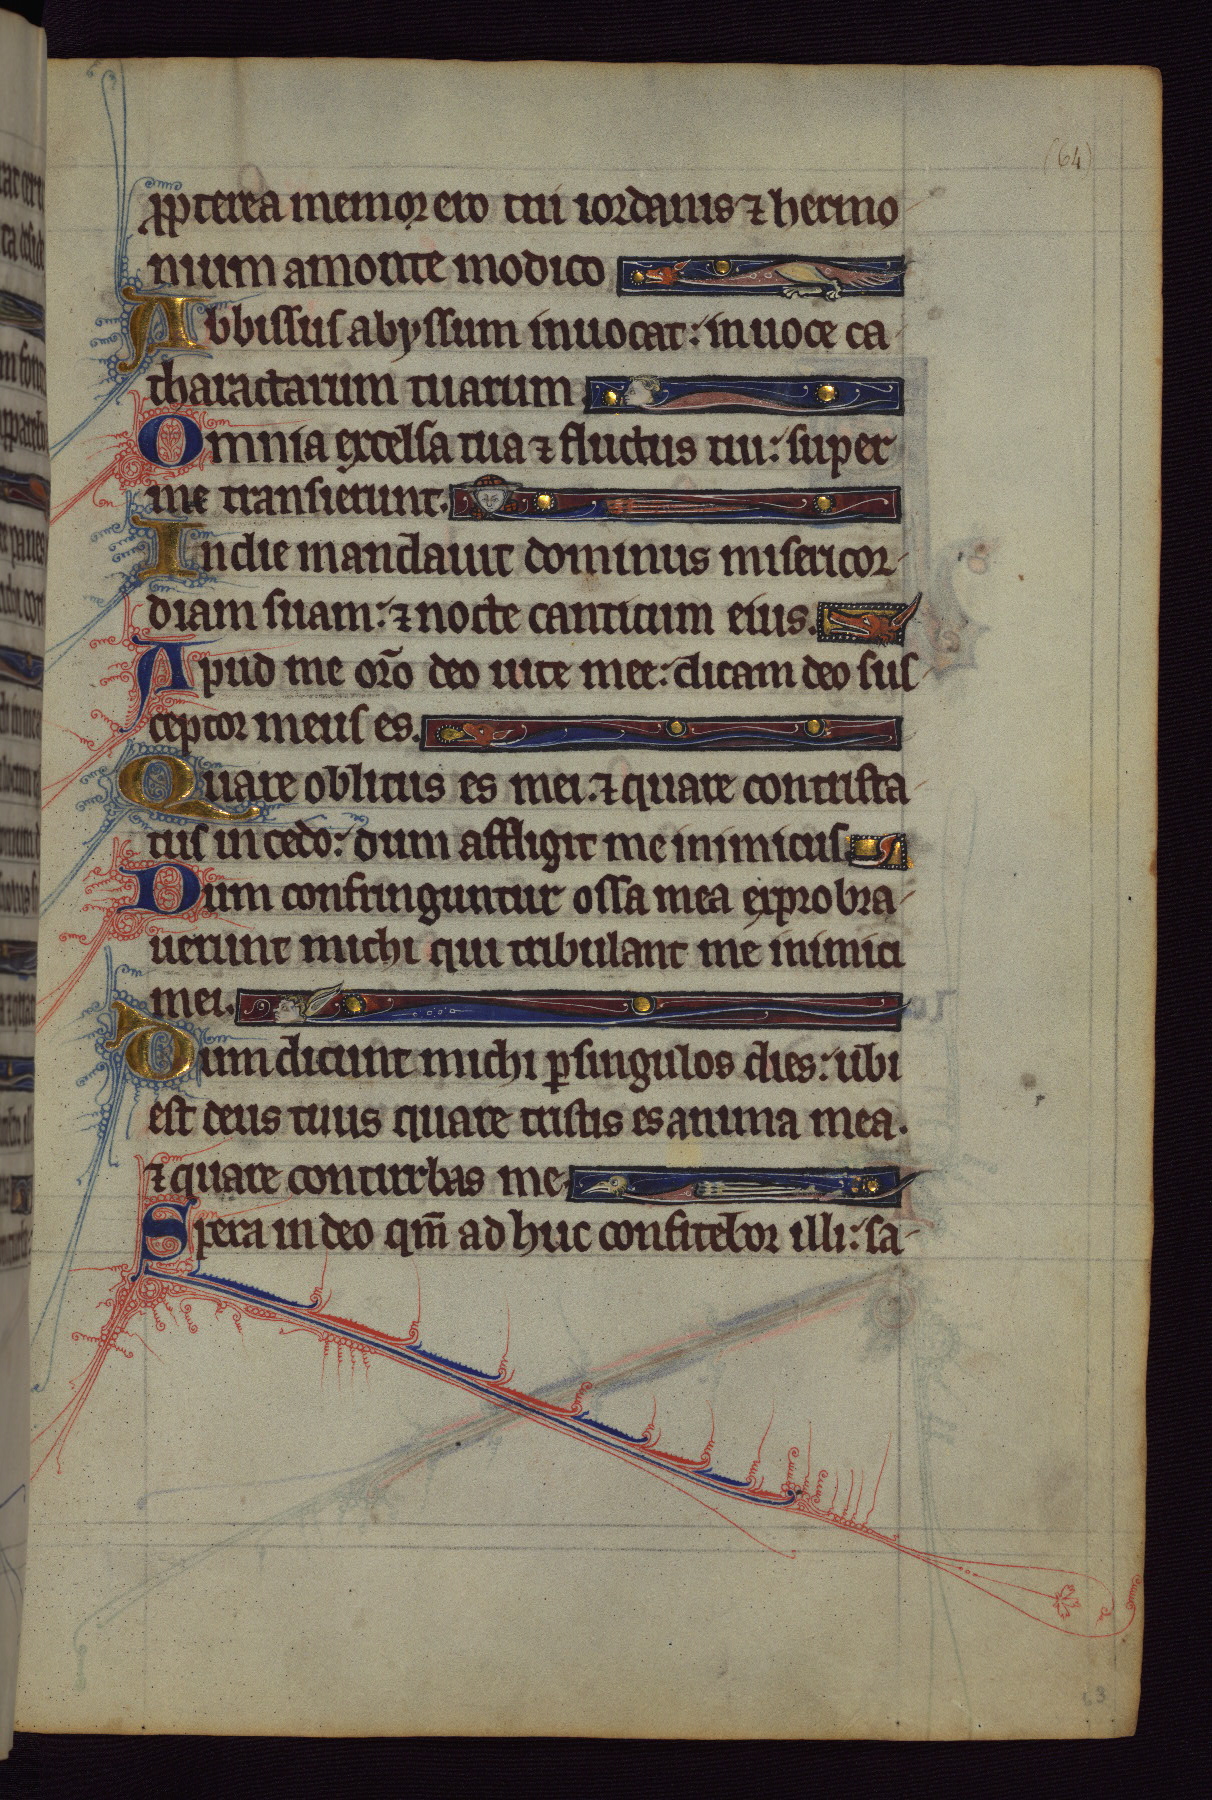 (64)
ꝓpterea memor ero tui iordanis ⁊ hermo
nium a monte modico
Abbissus abyssum inuocat: in uoce ca
tharactarum tuarum.
Omnia excelsa tua ⁊ fluctus tui: super
me transierunt.
In die mandauit dominus misericor
diam suam: ⁊ nocte canticum eius.
Apud me or̄o deo uite mee: dicam deo sus
ceptor meus es.
Quare oblitus es mei: ⁊ quare contrista
tus incedo: dum affligit me inimicus
Dum confringuntur ossa mea exprobra
uerunt michi qui tribulant me inimici
mei.
Dum dicunt michi ꝑ singulos dies: ubi
est deus tuus quare tristis es anima mea.
⁊ quare conturbas me
Spera in deo qm̄ ad huc confitebor illi: sa
63